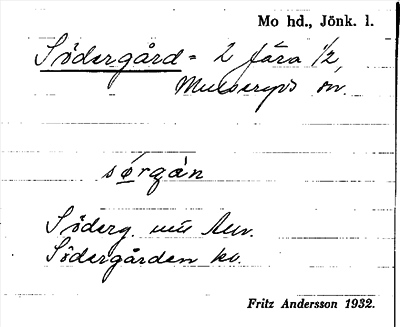 Mo hd., Jönk. l.
Södergård = 2 Jära 1/2,
Mulseryds sn.
sørgȧn
Söderg.
Södergården kv.
Fritz Andersson 1932.